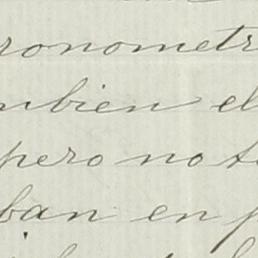 ronometr
mbien el
pero no te
ban en p